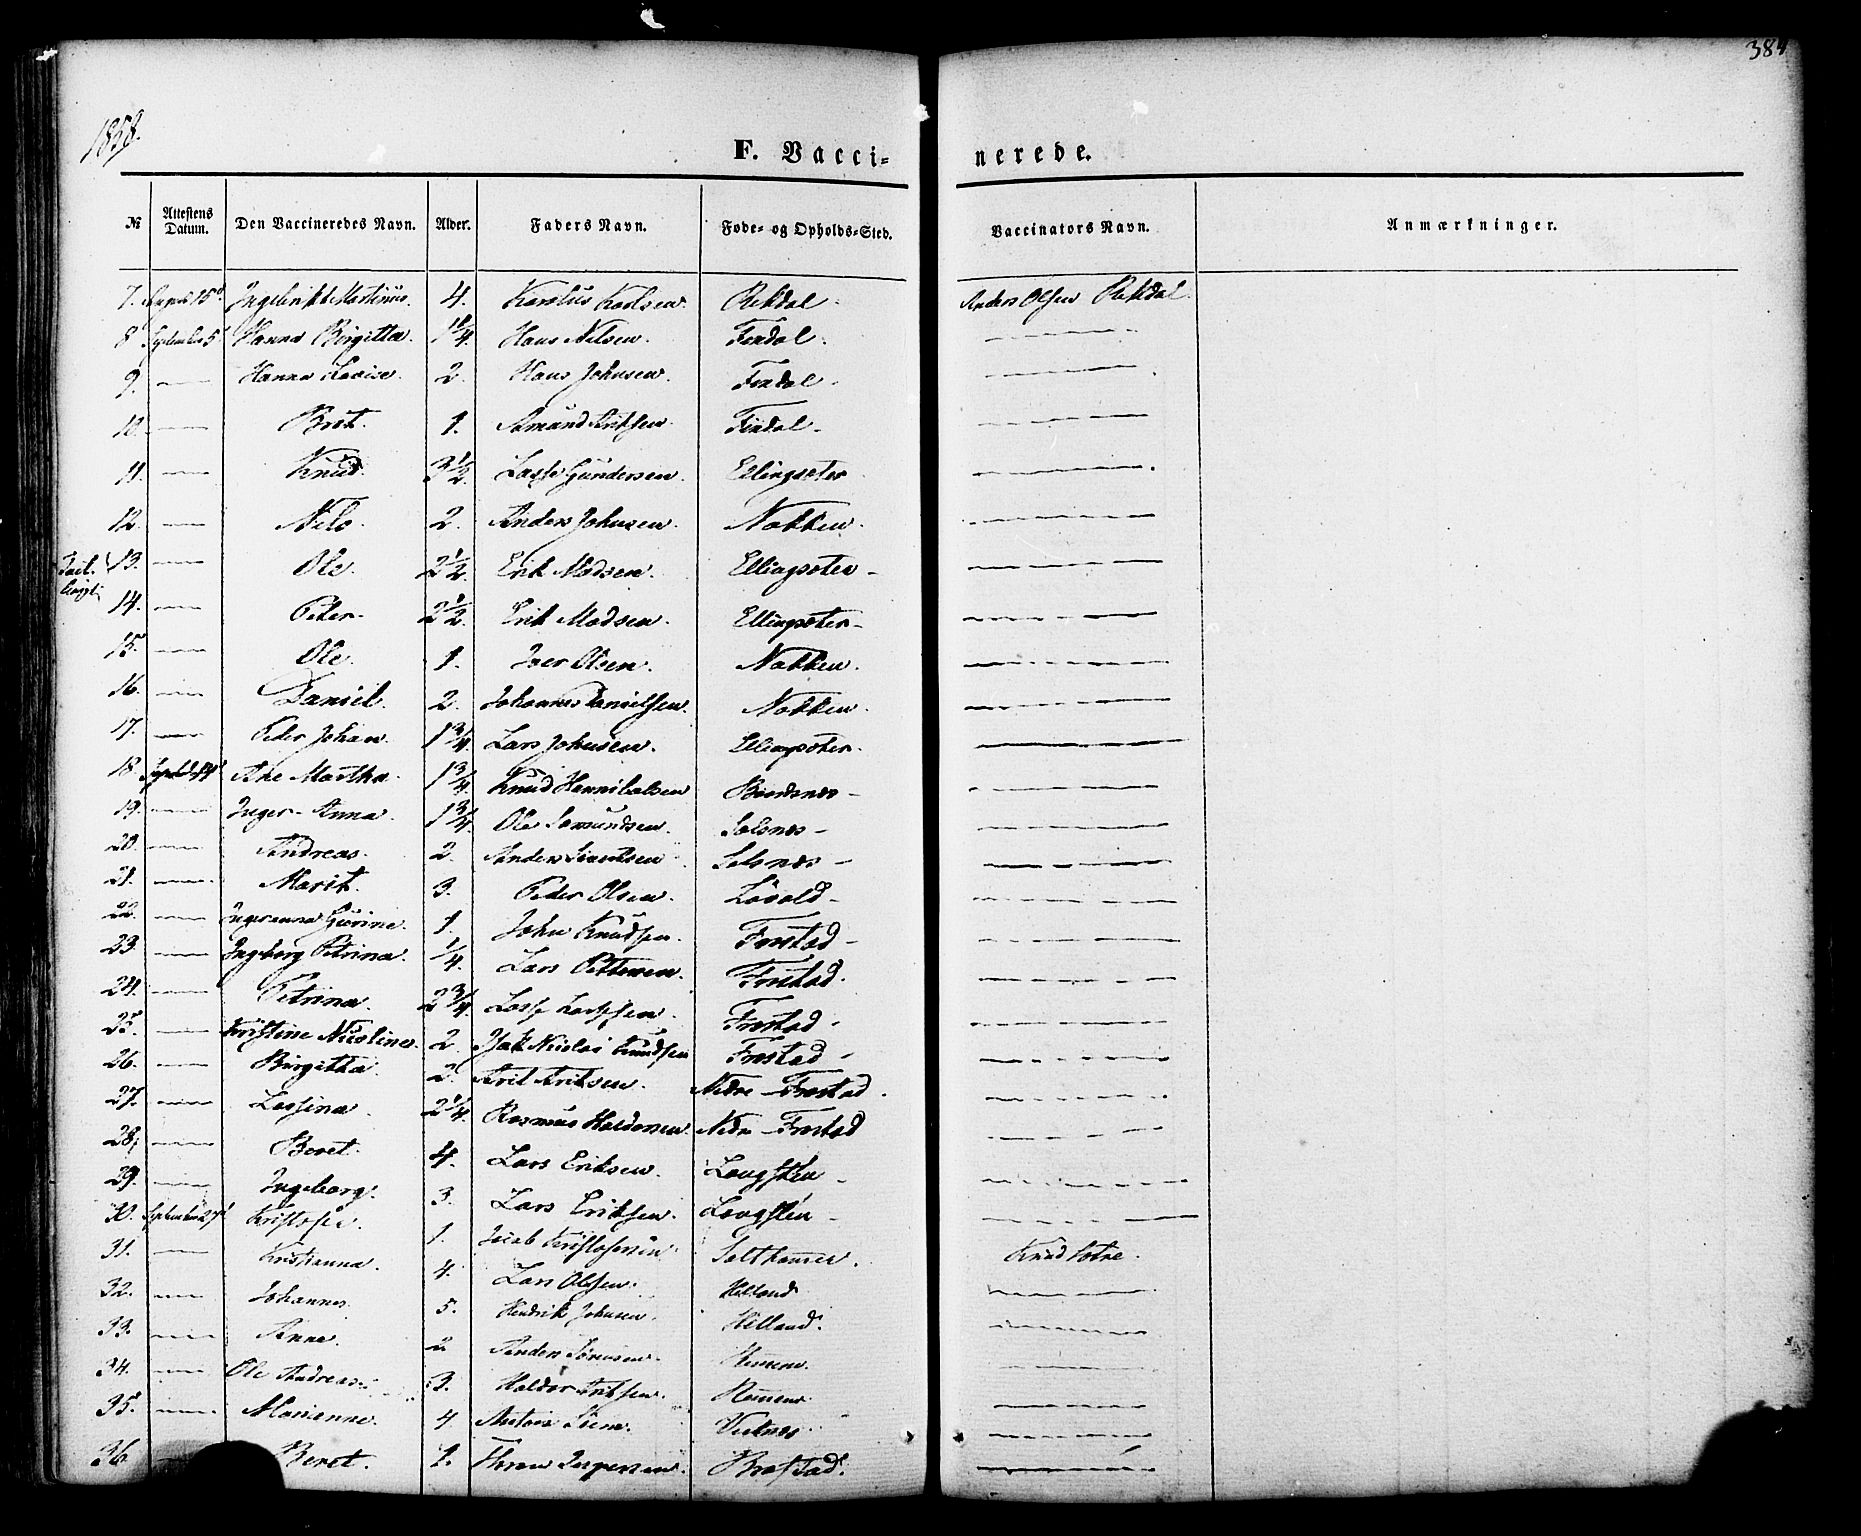 384
1858.
F. Vaccinerede.
№ Attestens Datum. Den Vaccineredes Navn. Alder. Faders Navn. Føde- og Opholds-Sted. Vaccinators Navn. Anmærkninger.
7. August 15de Ingebrikt Martinus. 4. Karolus Karlsen. Rekdal. Anders Olsen Rekdal.
8 September 5te Hanna Birgitta. 1 1/4. Hans Nilsen. Findal.
9. — Hanna Lovise. 2. Hans Johnsen. Findal.
10. — Brit. 1. Amund Eriksen. Findal.
11. — Knud. 3 1/2. Lasse Gundersen. Ellingsæter
12. — Nils. 2. Anders Johnsen. Nakken.
13. — Ole. 2 1/2. Erik Madsen. Ellingsæter
14. — Peter. 2 1/2. Erik Madsen. Ellingsæter
15. — Ole. 1. Iver Olsen. Nakken.
16. — Daniel. 2. Johannes Danielsen. Nakken.
17. — Peder Johan. 1 3/4. Lars Johnsen. Ellingsæter.
18 Ane Martha. 1 3/4. Knud Hannibalsen
19. — Inger Anna. 1 3/4. Ole Amundsen. Solsnes
20. — Andreas. 2. Anders Sivertsen Solsnes
21. — Marit. 3. Peder Olsen. Løvold
22. — Ingeranna Gurine. 1. John Knudsen. Frostad
23. — Ingeborg Petrina. 1/4. Lars Pettersen. Frostad.
24. — Petrina. 2 3/4. Lasse Lassesen. Frostad
25. — Kristine Nicoline. 2. Isak Nicolai Knudsen Frostad
26. — Birgitha. 2. Arit Eriksen. Nedre Frostad.
27. — Lassina. 2 1/4. Rasmus Haldorsen. Nedre Frostad
28. — Beret. 4. Lars Eriksen. Langsten
29. — Ingeborg. 3. Lars Eriksen. Langsten
30. September 27de Kristofer. 1. Jacob Kristofersen. Salthammer. Knud Sotre.
31. — Kristianna. 4. Lars Olsen. Helland
32. — Johannes. 5. Hendrik Johnsen. Helland.
33. — Anne. 2 Anders Sørensen. Hammen.
34. — Ole Andreas. 3. Haldor Eriksen. Hammen
35. — Marianne. 4. Anton Siem. Viknes
36. Beret. 1. Jespersen. Brastad.